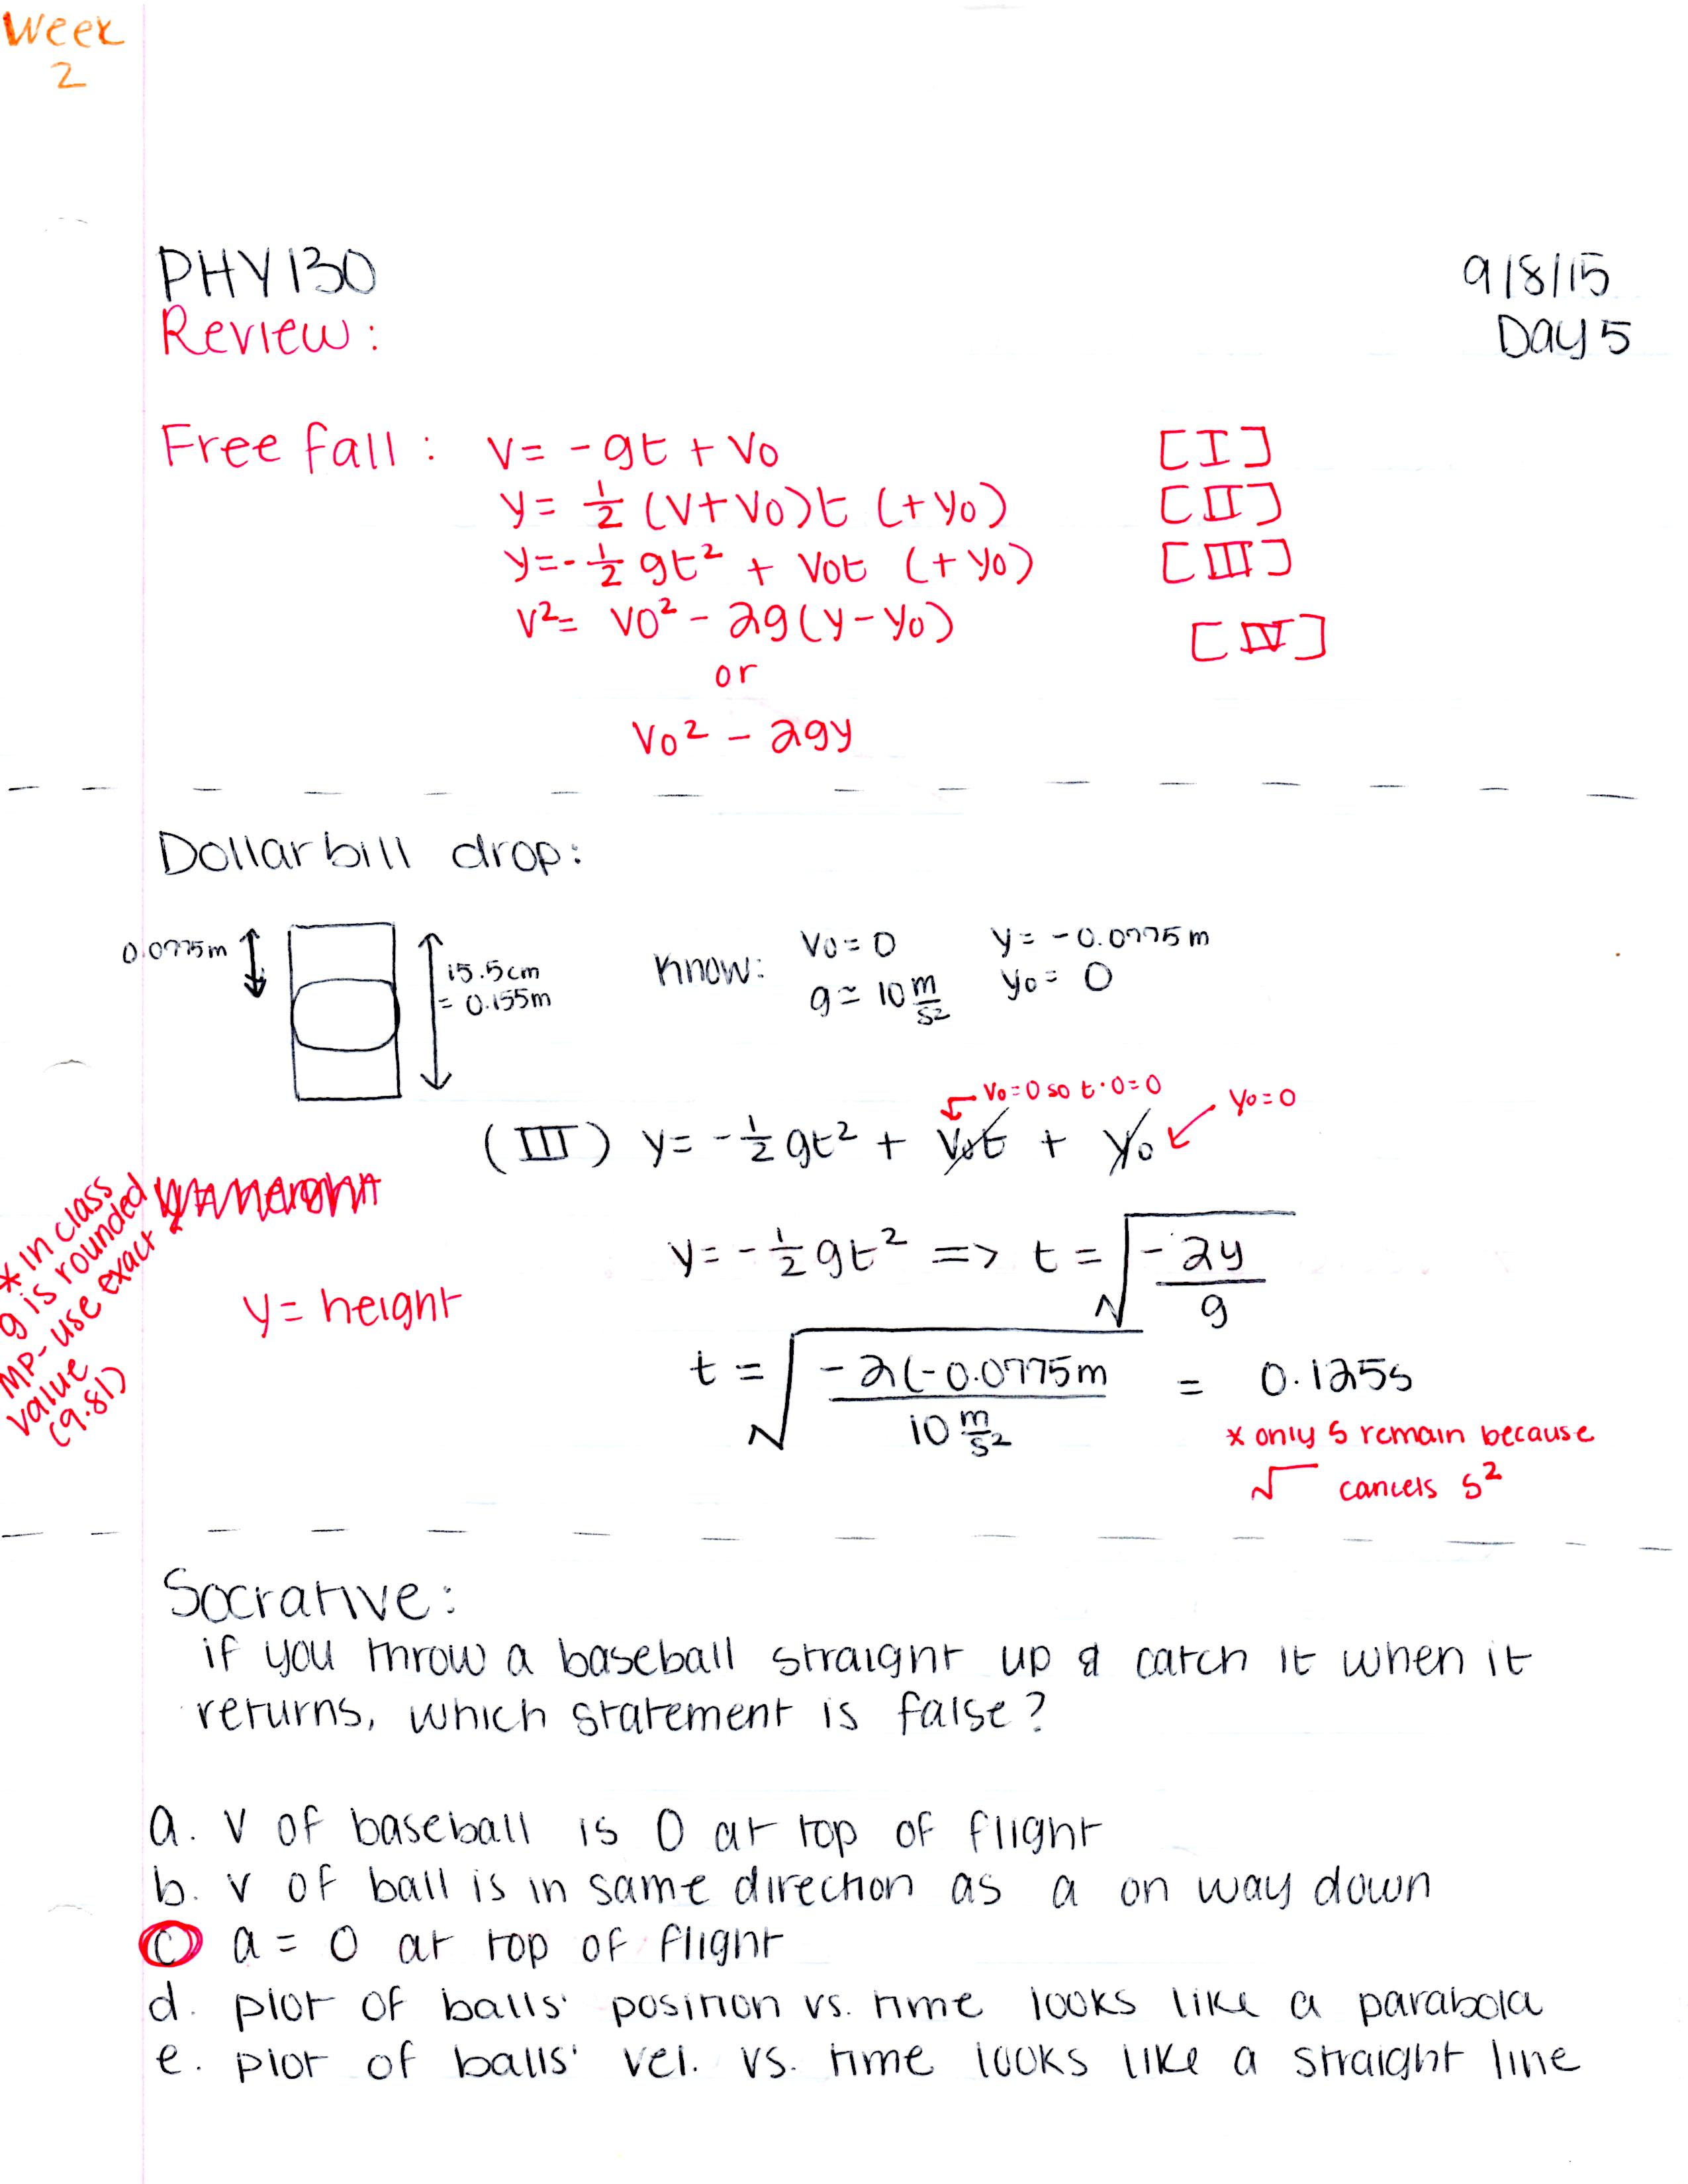 Week
2
PHY130
9/8/15
Review:
Day 5
Free fall: v = -gt + v0 [I]
y = 1/2 (v+v0)t (+y0) [II]
y = -1/2 gt² + v0t (+y0) [III]
v² = v0² - 2g(y-y0) [IV]
or
v0² - 2gy
Dollar bill drop:
0.0775m
15.5cm
= 0.155m
Know: v0 = 0 y = -0.0775m
g ≈ 10 m/s² y0 = 0
v0 = 0 so t·0 = 0
y0 = 0
(III) y = -1/2 gt² + v0t + y0
* in class
g is rounded
MP- use exact
value
(9.81)
y = -1/2 gt² => t = √(-2y/g)
y = height
t = √(-2(-0.0775m / 10 m/s²) = 0.125s
* only s remain because
√ cancels s²
Socrative:
if you throw a baseball straight up & catch it when it
returns, which statement is false?
a. v of baseball is 0 at top of flight
b. v of ball is in same direction as a on way down
c a = 0 at top of flight
d. plot of balls' position vs. time looks like a parabola
e. plot of balls' vel. vs. time looks like a straight line